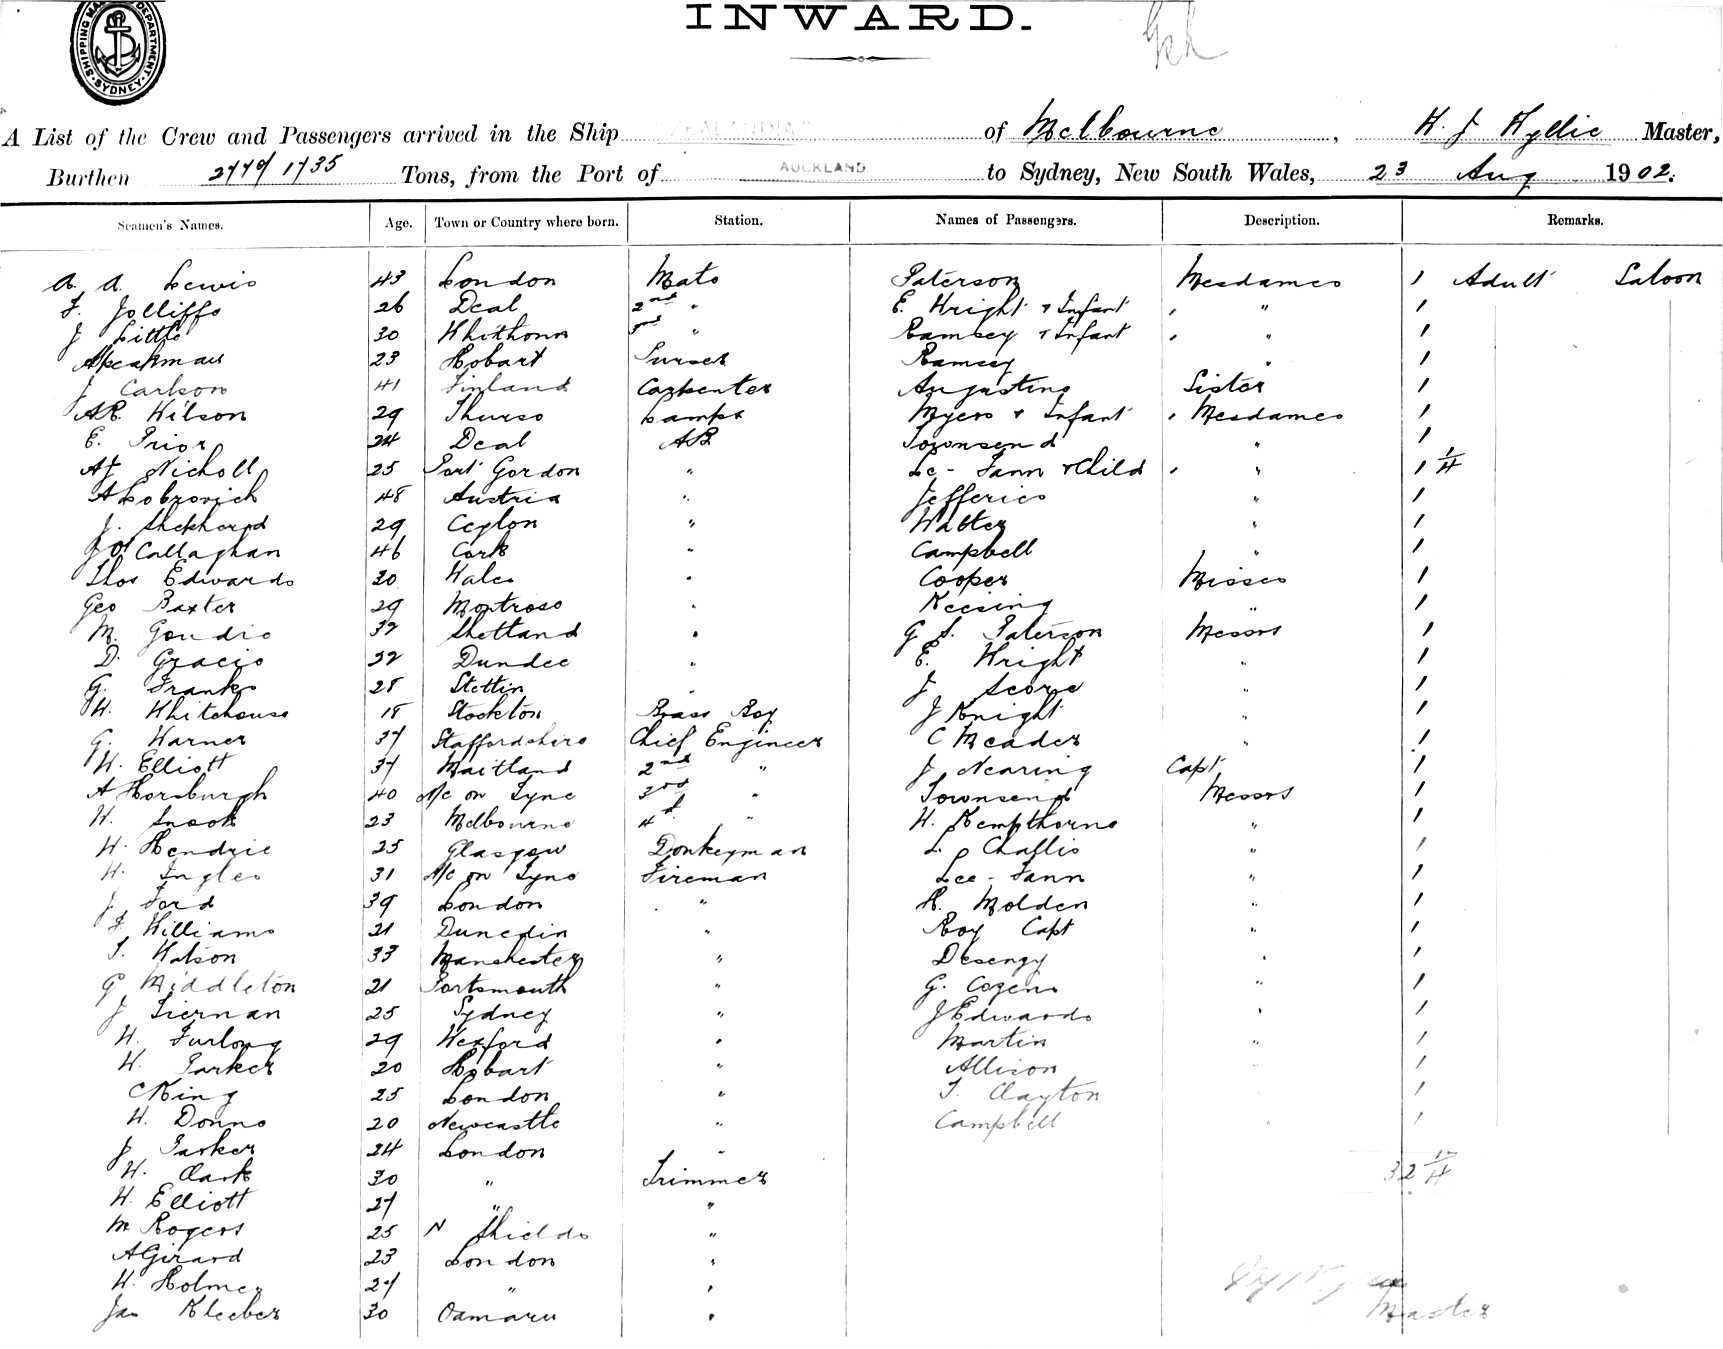 SHIPPING MASTER'S DEPARTMENT SYDNEY
INWARD.
A List of the Crew and Passengers arrived in the Ship ZEALANDIA of Melbourne, H. J Wyllie Master,
Burthen 2770/1735 Tons, from the Port of AUCKLAND to Sydney, New South Wales, 23 Aug 1902.
Seamen's Names. Age. Town or Country where born. Station. Names of Passengers. Description. Remarks.
A. A. Lewis 43 London Mate Paterson Mesdames 1 Adult Saloon
F. Jolliffe 26 Deal 2nd " E. Wright & Infant " 1
J Little 30 Whithorn 3rd " Ramsey & Infant " 1
Speakman 23 Hobart Purser Ramsey " 1
J Carlson 41 Finland Carpenter Augustine Sister 1
AR. Wilson 29 Thurso Lamps Myers & Infant Mesdames 1
E. Prior 24 Deal AB Townsend " 1
AJ Nicholl 25 Port Gordon " Le-Fann & Child " 1 1/4
A Lobrovich 48 Austria " Jefferies " 1
J. Shekherd 29 Ceylon " Walter " 1
J O'Callaghan 46 Cork " Campbell " 1
Thos Edwards 30 Wales " Cooper Misses 1
Geo Baxter 29 Montrose " Keesing " 1
M. Goudie 37 Shetland " G. S. Paterson Messrs 1
D. Gracie 32 Dundee " E. Wright " 1
G. Franks 28 Stettin " J Score " 1
W. Whitehouse 18 Stockton Brass Boy J Knight " 1
G. Warner 37 Staffordshire Chief Engineer C Meader " 1
W. Elliott 37 Maitland 2nd " J Nearing Capt 1
A Horsburgh 40 N/c on Tyne 3rd " Townsend Messrs 1
W. Snook 23 Melbourne 4th " W. Kempthorne " 1
W. Hendrie 25 Glasgow Donkeyman L. P Challis " 1
W. Ingles 31 N/c on Tyne Fireman Lee-Fann " 1
J Ford 39 London " H. Molden " 1
F Williams 21 Dunedin " Roy Capt " 1
T. Watson 33 Manchester " Desengy " 1
G Middleton 21 Portsmouth " G. Cozens " 1
J Tiernan 25 Sydney " J Edwards " 1
W. Furlong 29 Wexford " Martin " 1
W. Parker 20 Hobart " Allison 1
C King 25 London " T. Clayton 1
W. Donne 20 Newcastle " Campbell 1
J Parker 24 London "
W. Clark 30 " Trimmer 32 1/4
W. Elliott 27 " "
M Rogers 25 N Shields "
A Girard 23 London "
W. Holmes 27 " "
Jas Kleeber 30 Oamaru "
Master